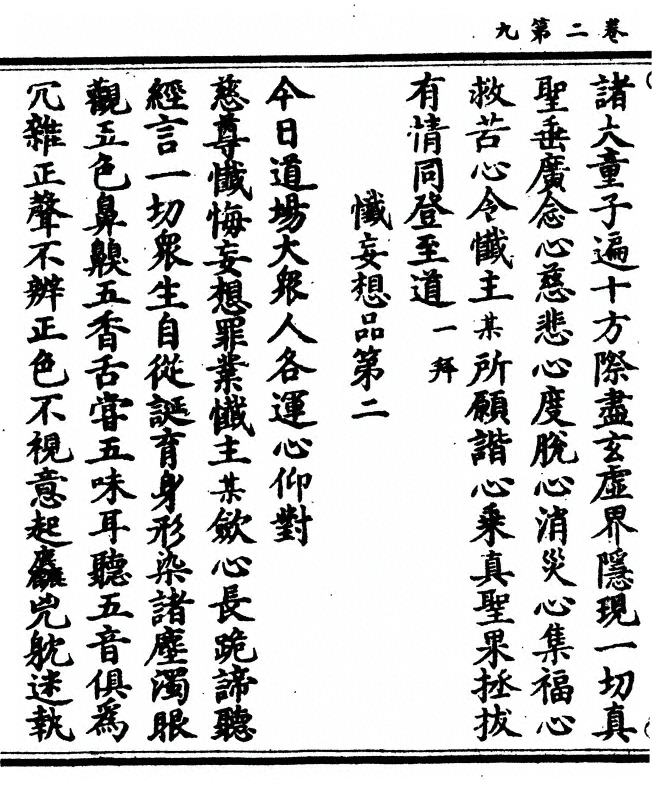 卷二第九
諸大童子遍十方際盡玄虛界隱現一切真
聖垂廣念心慈悲心度脫心消災心集福心
救苦心令懺主某所願諧心乘真聖果拯拔
有情同登至道一拜
懺妄想品第二
今日道場大眾人各運心仰對
慈尊懺悔妄想罪業懺主某歛心長跪諦聽
經言一切眾生自從誕育身形染諸塵濁眼
觀五色鼻齅五香舌嘗五味耳聽五音俱為
冗雜正聲不辨正色不視意起麤兇躭迷執